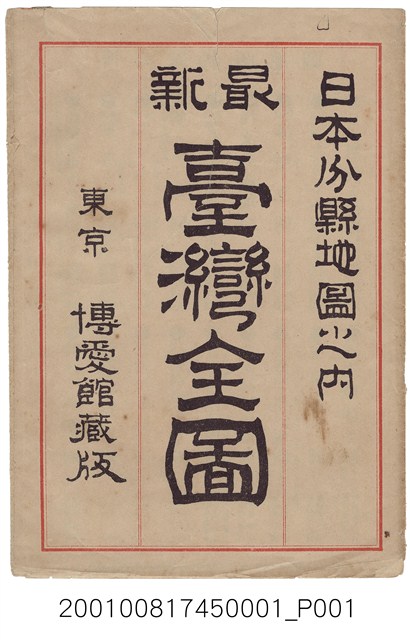 日本分縣地圖之內
最新
臺灣全圖
東京 博愛館藏版
200100817450001_P001